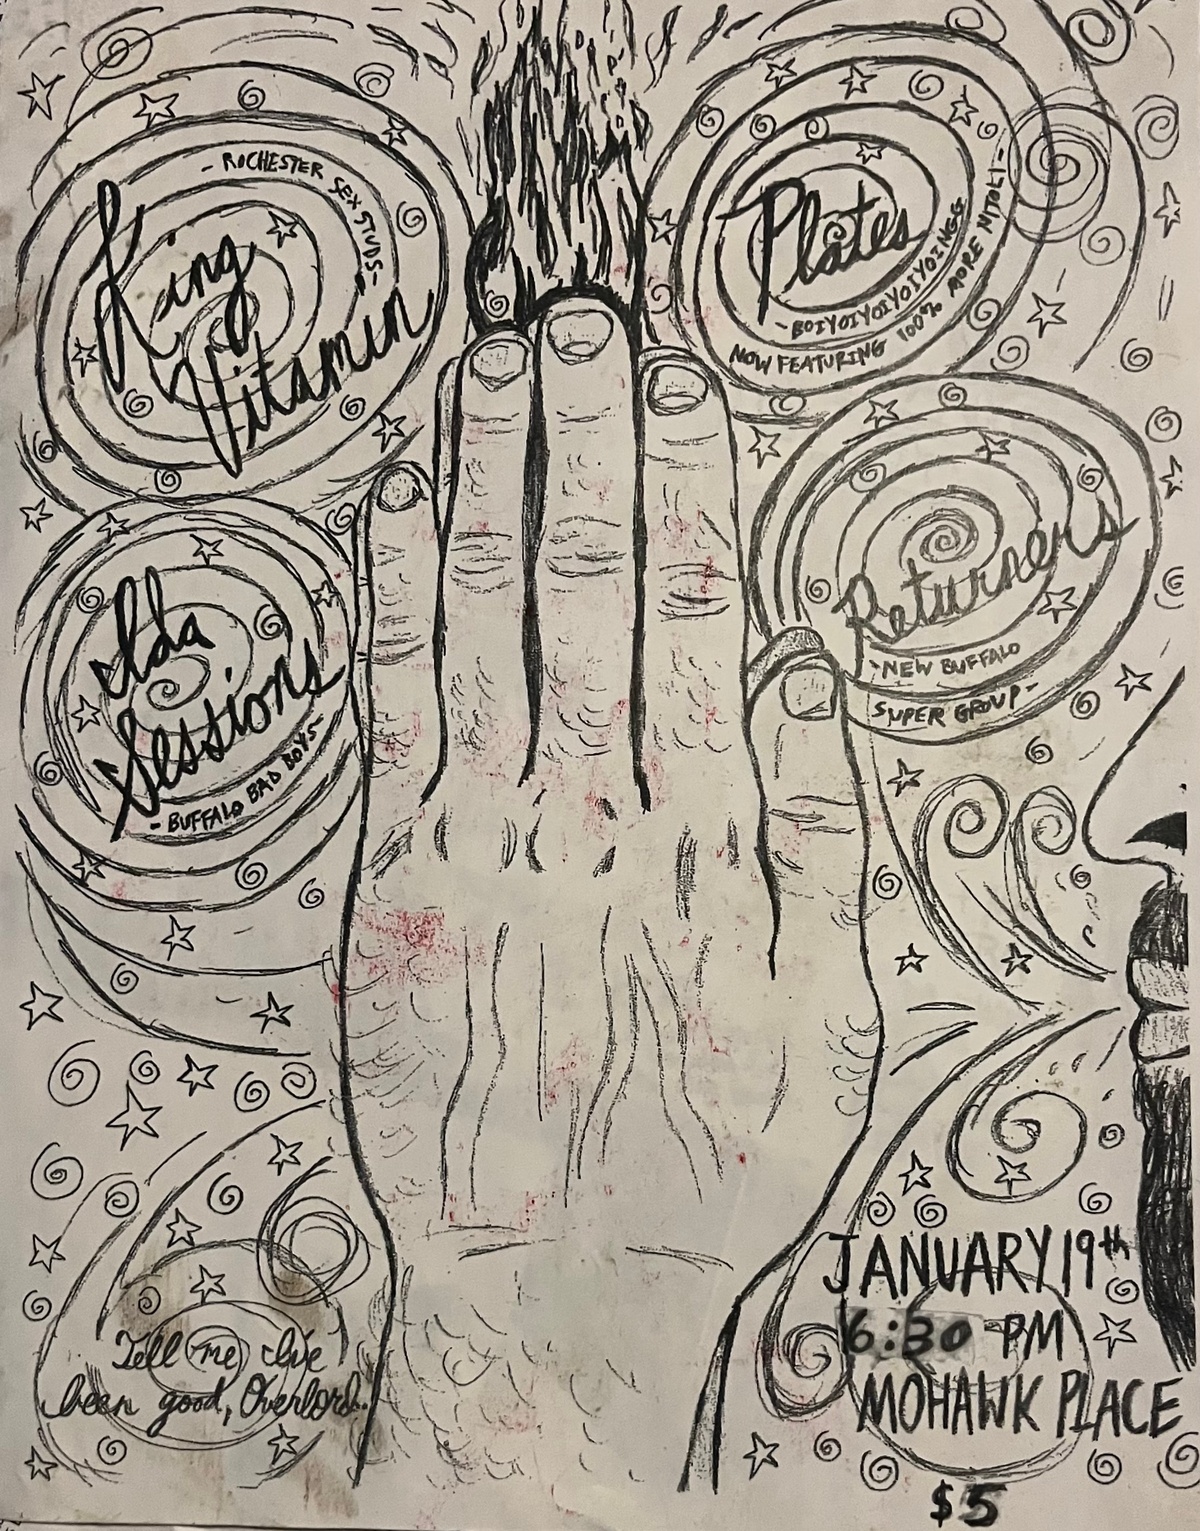 - ROCHESTER SEX STUDS -
King
Vitamin
Plates
- BOIYOIYOIYOIYOINGG
NOW FEATURING 100% MORE NITOLI -
Ida
Sessions
- BUFFALO BAD BOYS -
Returners
- NEW BUFFALO
SUPER GROUP -
Tell me I've
been good, Overlord..
JANUARY 19th
6:30 PM
MOHAWK PLACE
$5